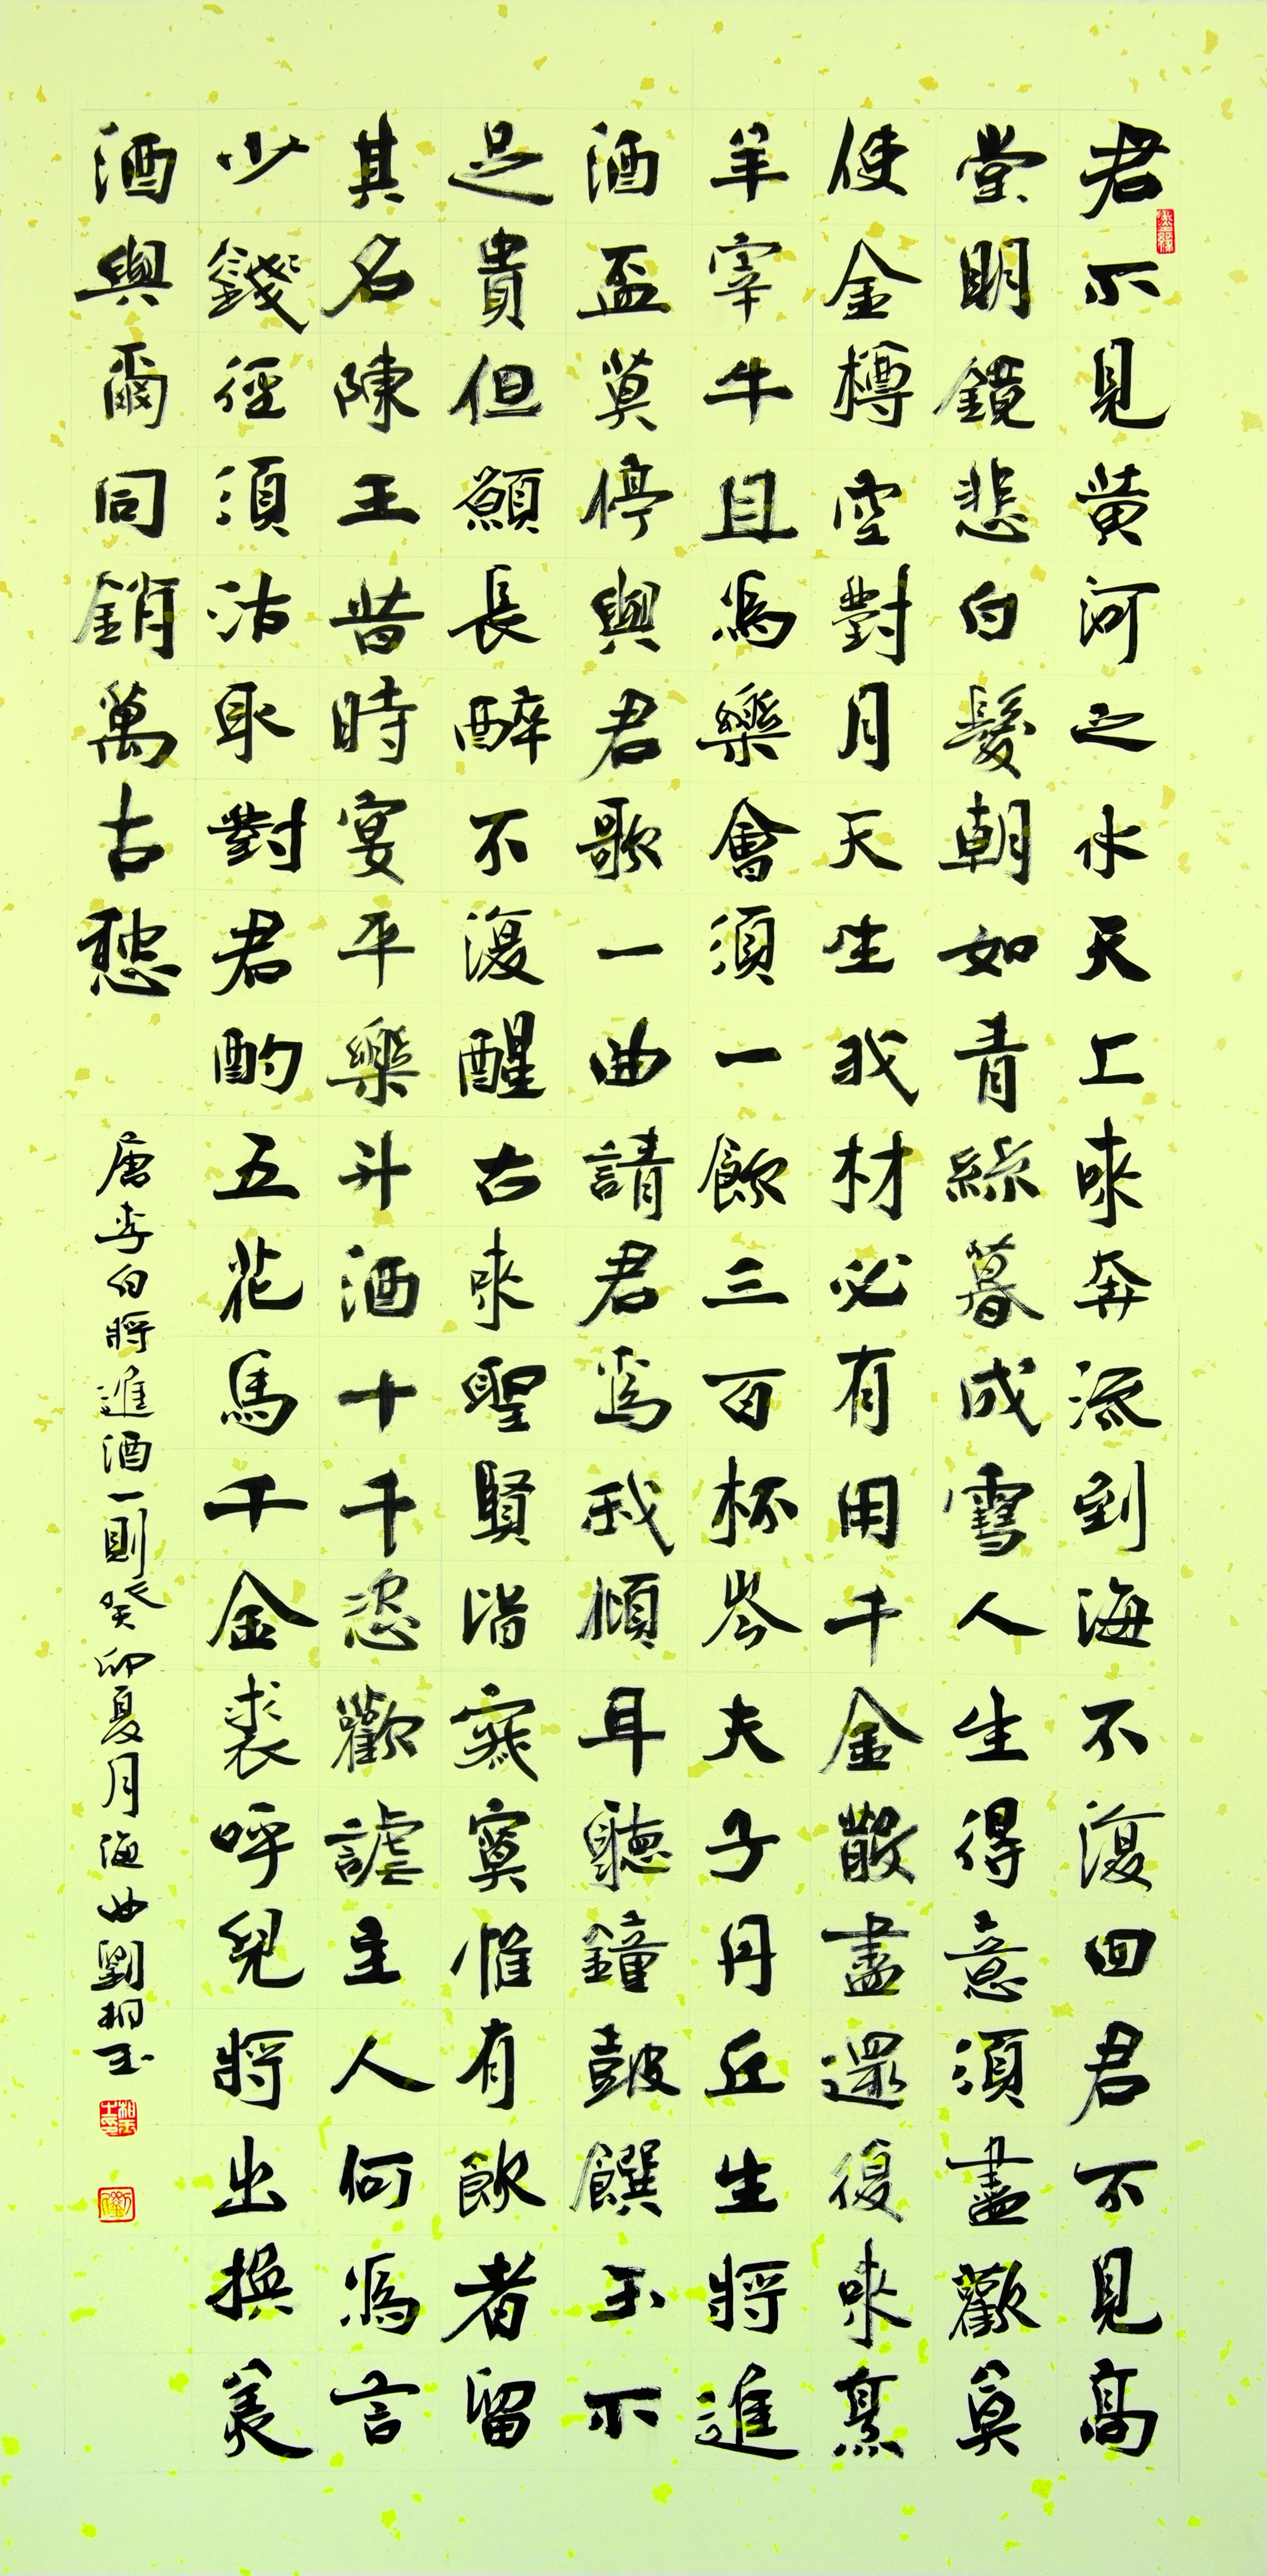 君不見黃河之水天上來奔流到海不復回君不見高
堂明鏡悲白髮朝如青絲暮成雪人生得意須盡歡莫
使金樽空對月天生我材必有用千金散盡還復來烹
羊宰牛且為樂會須一飲三百杯岑夫子丹丘生將進
酒盃莫停與君歌一曲請君為我傾耳聽鐘鼓饌玉不
足貴但願長醉不復醒古來聖賢皆寂寞惟有飲者留
其名陳王昔時宴平樂斗酒十千恣歡謔主人何為言
少錢徑須沽取對君酌五花馬千金裘呼兒將出換美
酒與爾同銷萬古愁
唐李白將進酒一則癸卯夏月海曲劉相玉